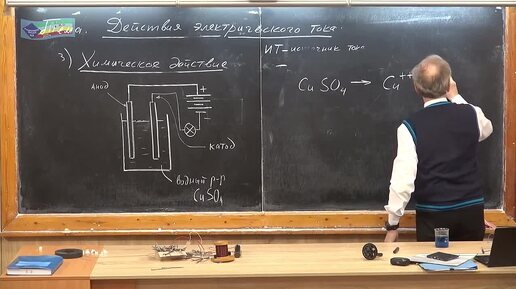 Тема. Действия электрического тока.
3) Химическое действие
анод
+
катод
водный р-р
CuSO4
ИТ-источник тока
CuSO4 → Cu++